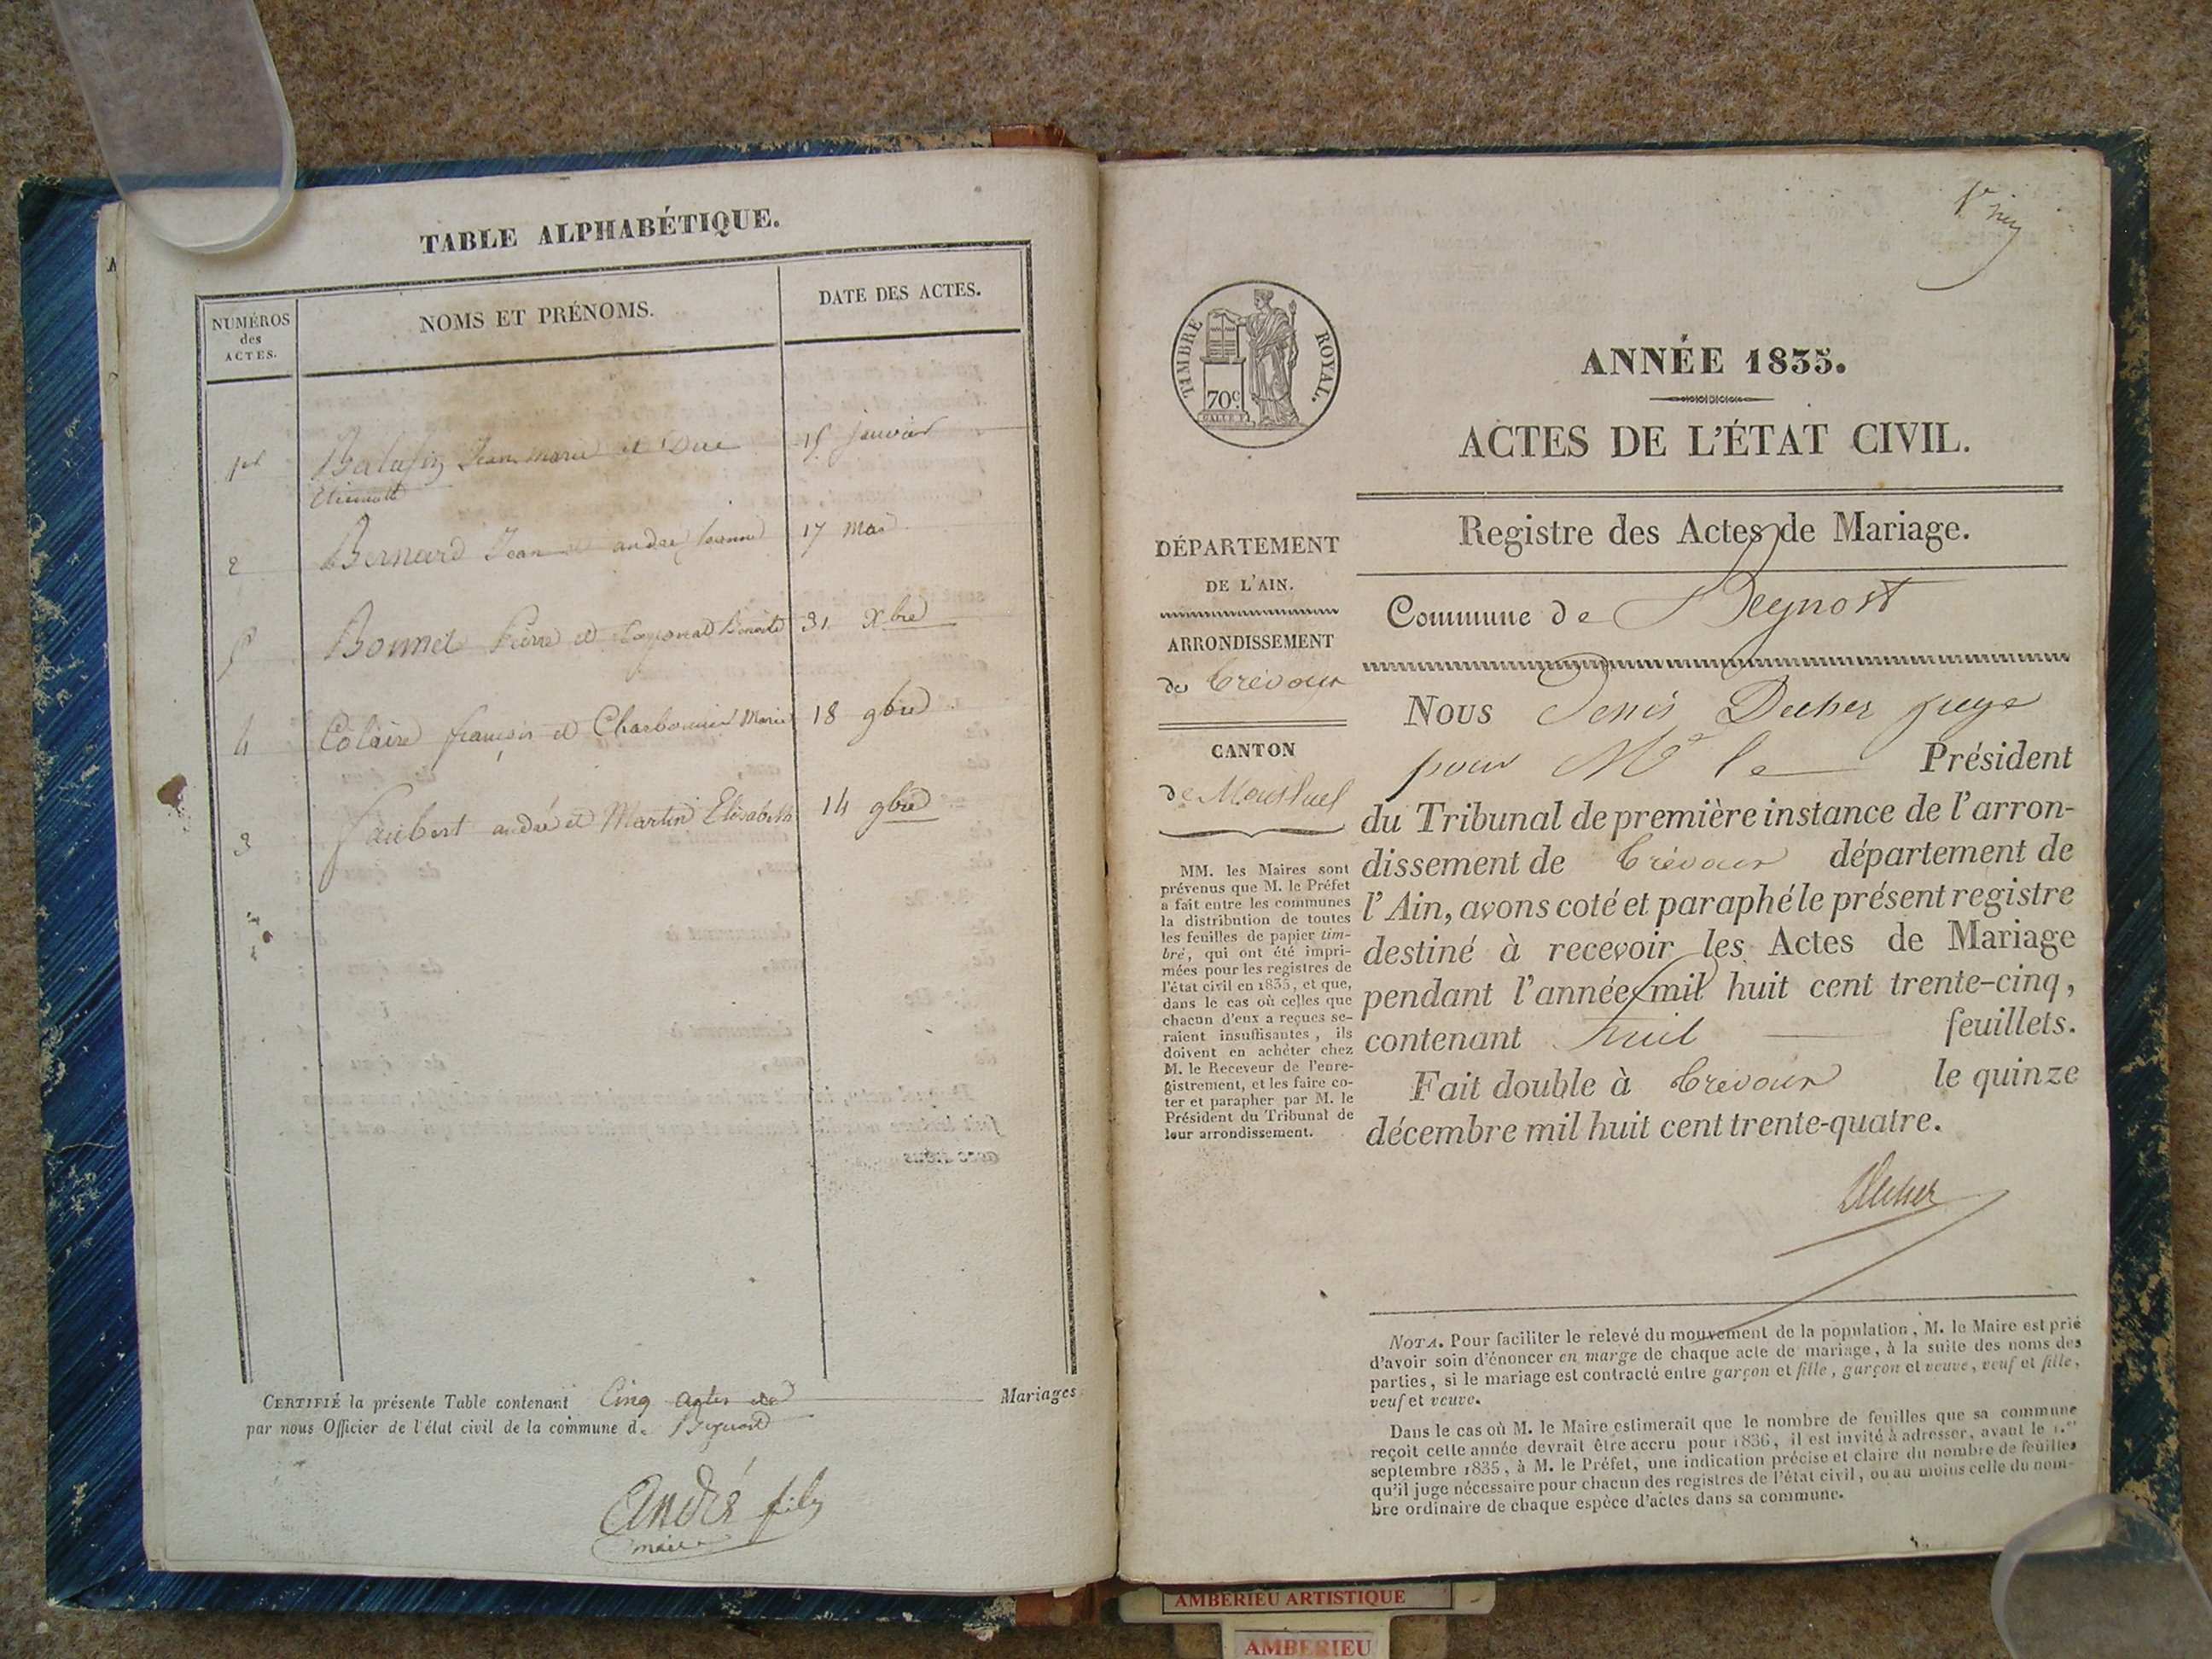 TABLE ALPHABÉTIQUE.
NUMÉROS
des
ACTES.
NOMS ET PRÉNOMS.
DATE DES ACTES.
1er Jean marie et Duc 15 janvier
2 Bernard Jean et andré jeanne 17 mai
5 Bonnet Pierre et Benoite 31 Xbre
4 Colaire françois et Charbonnier Marie 18 9bre
3 Jaubert andré et Martin Elisabeth 14 9bre
CERTIFIÉ la présente Table contenant Cinq actes de Mariages
par nous Officier de l'état civil de la commune de Beynost
André fils
maire
TIMBRE ROYAL.
70c.
ANNÉE 1835.
ACTES DE L'ÉTAT CIVIL.
Registre des Actes de Mariage.
DÉPARTEMENT
DE L'AIN.
ARRONDISSEMENT
de Trévoux
CANTON
de Montluel
MM. les Maires sont
prévenus que M. le Préfet
a fait entre les communes
la distribution de toutes
les feuilles de papier tim-
bré, qui ont été impri-
mées pour les registres de
l'état civil en 1835, et que,
dans le cas où celles que
chacun d'eux a reçues se-
raient insuffisantes, ils
doivent en achéter chez
M. le Receveur de l'enre-
gistrement, et les faire co-
ter et parapher par M. le
Président du Tribunal de
leur arrondissement.
Commune de Beynost
Nous Denis Ducher juge
pour Mr le Président
du Tribunal de première instance de l'arron-
dissement de Trévoux département de
l'Ain, avons coté et paraphé le présent registre
destiné à recevoir les Actes de Mariage
pendant l'année mil huit cent trente-cinq,
contenant huit feuillets.
Fait double à Trévoux le quinze
décembre mil huit cent trente-quatre.
Ducher
NOTA. Pour faciliter le relevé du mouvement de la population, M. le Maire est prié
d'avoir soin d'énoncer en marge de chaque acte de mariage, à la suite des noms des
parties, si le mariage est contracté entre garçon et fille, garçon et veuve, veuf et fille,
veuf et veuve.
Dans le cas où M. le Maire estimerait que le nombre de feuilles que sa commune
reçoit cette année devrait être accru pour 1836, il est invité à adresser, avant le 1.er
septembre 1835, à M. le Préfet, une indication précise et claire du nombre de feuilles
qu'il juge nécessaire pour chacun des registres de l'état civil, ou au moins celle du nom-
bre ordinaire de chaque espèce d'actes dans sa commune.
AMBERIEU ARTISTIQUE
AMBERIEU